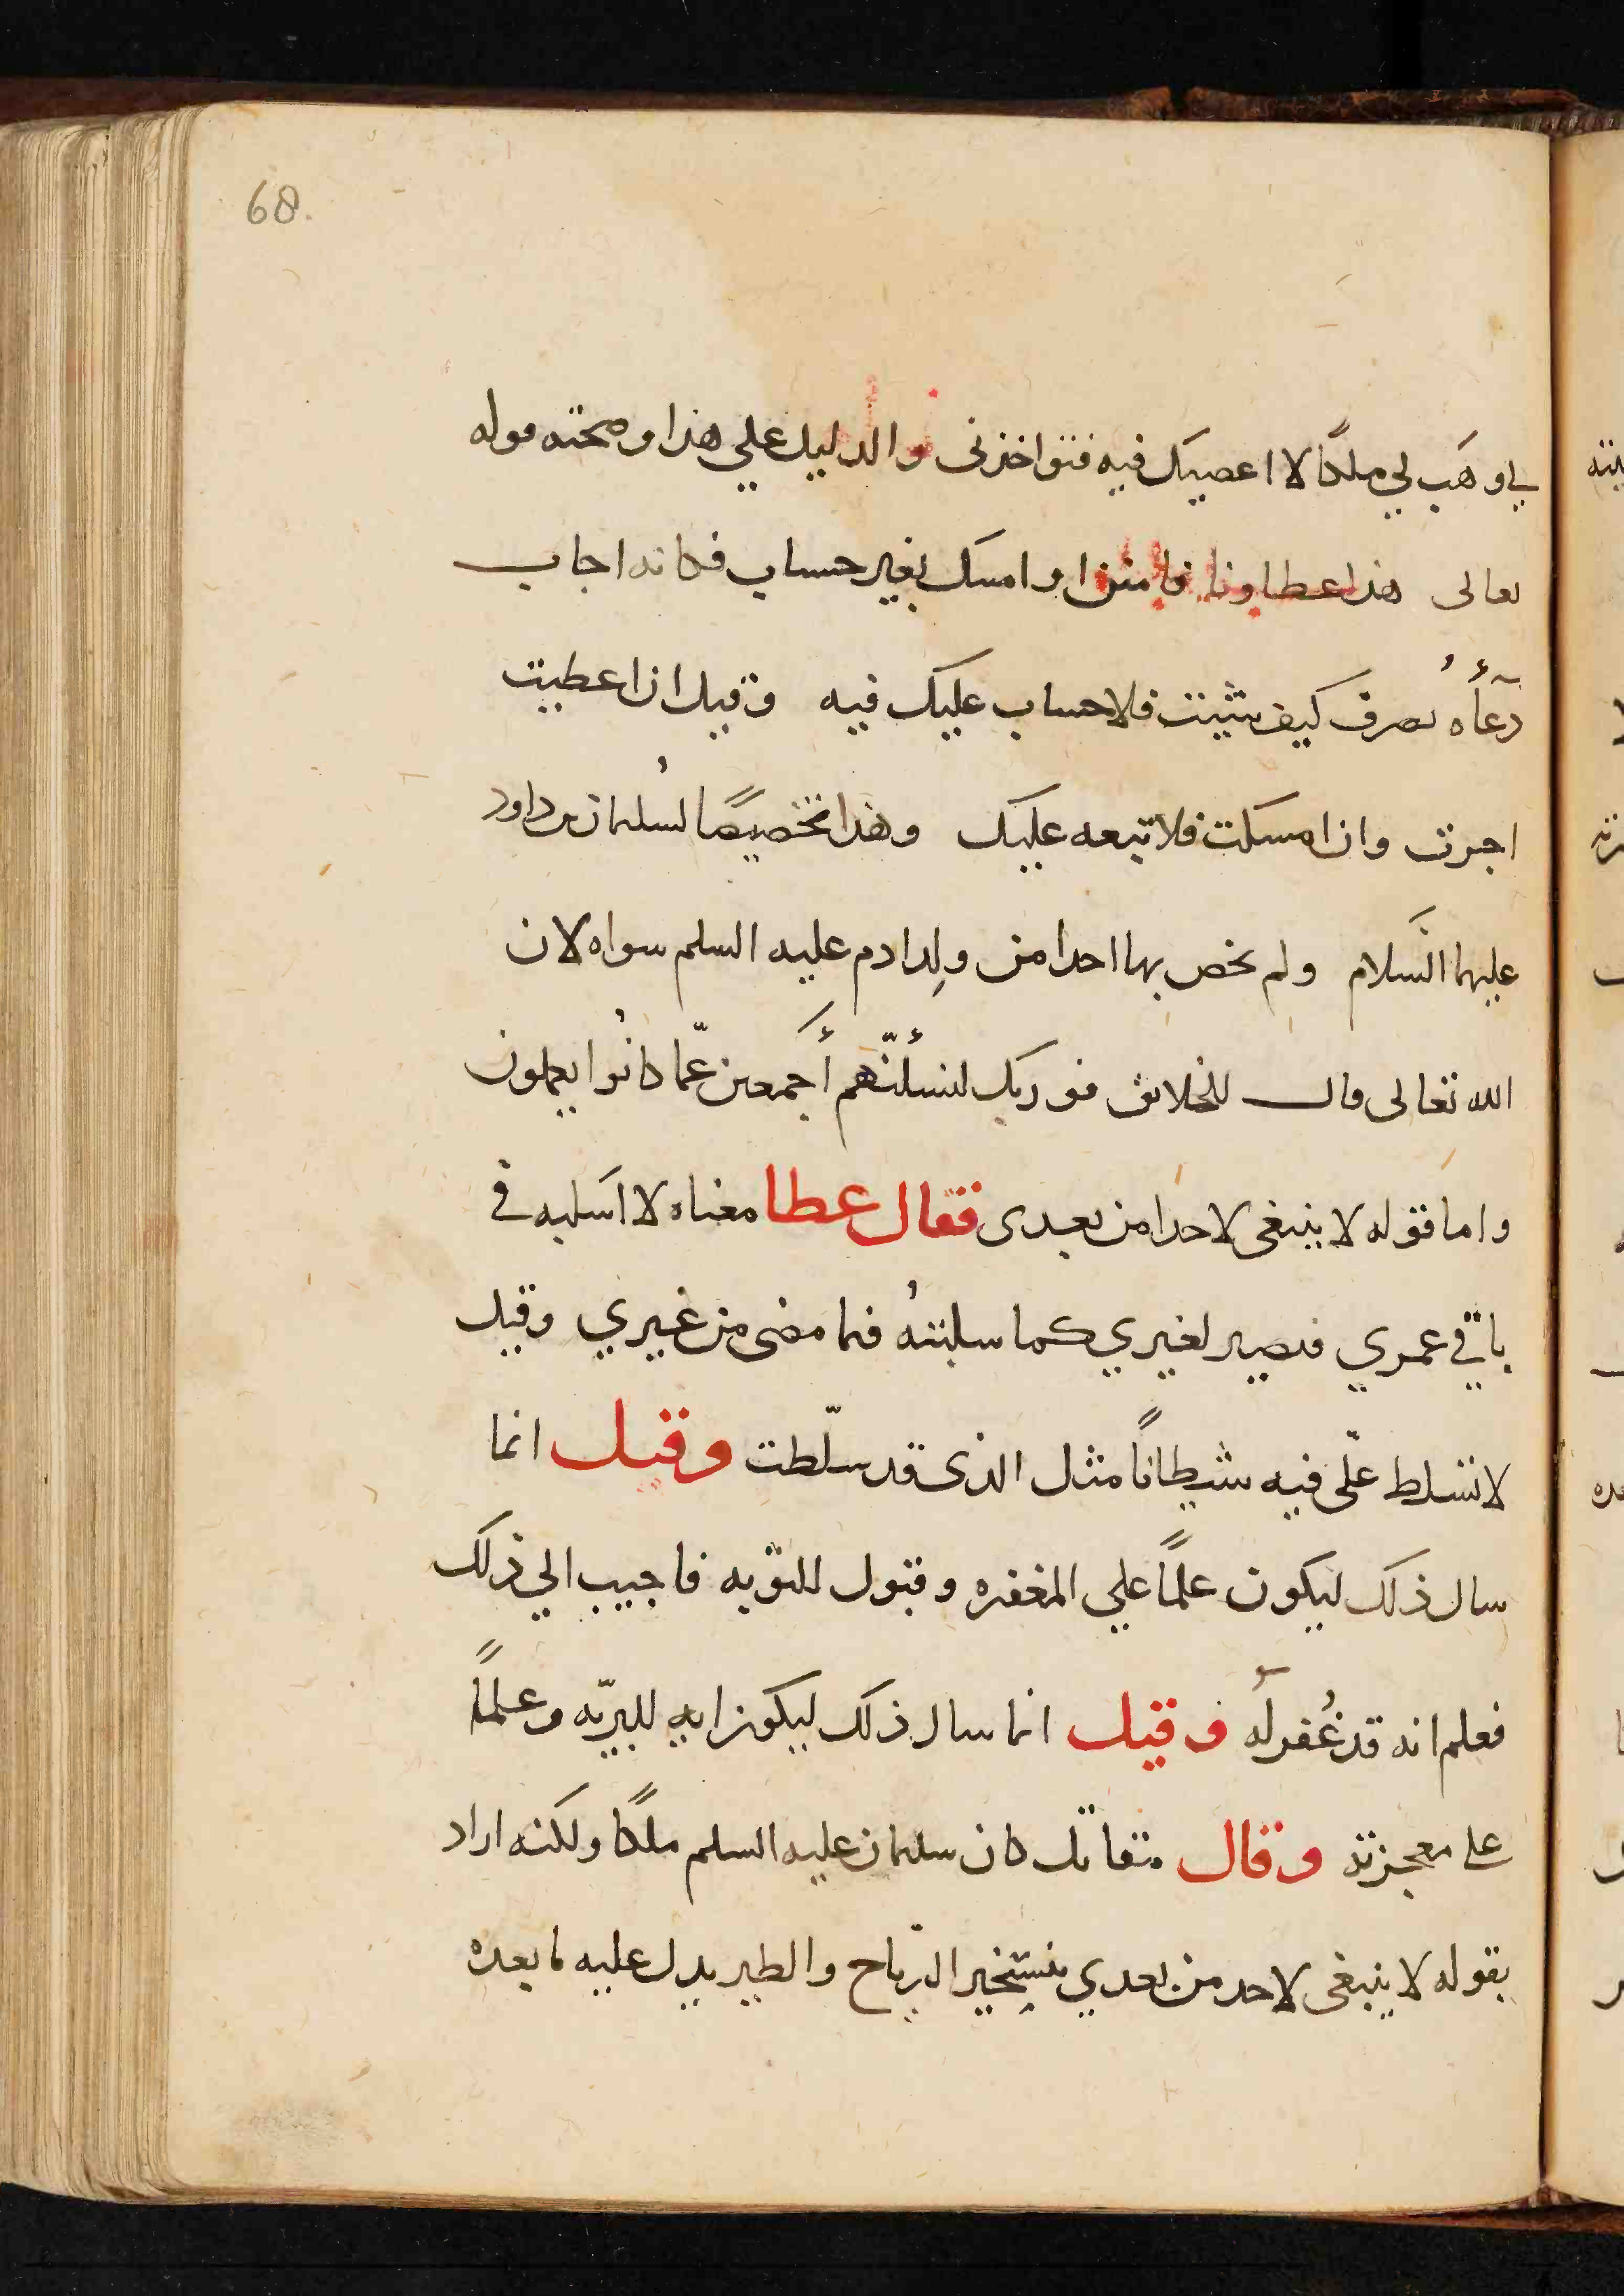 68.
لي وهب لي ملكًا لا اعصيك فيه فتواخذني والدليل علي هذا وصحته قوله
تعالى هذا عطاونا فامنن او امسك بغير حساب فكانه اجاب
دعآءُه تصرف كيف شيت فلا حساب عليك فيه وقيل ان اعطيت
اجرت وان امسكت فلا تبعه عليك وهذا تخصيصًا لسُليمان بن داود
عليهما السَلام ولم يخص بها احدا من ولِد ادم عليه السلم سواه لان
الله تعالى قال للخلايق فوربك لنسئلنّهم أجمعين عمّا كانُوا يعملون
واما قوله لا ينبغي لاحد من بعدى فقال عطا معناه لا اسَلبه في
باقي عمري فيصير لغيري كما سلبتهُ فيما مضى من غيري وقيل
لا تسَلط علّى فيه شيطانًا مثل الذى قد سلّطت وقيل انما
سال ذلك ليكون علمًا علي المغفره وقبول للتوّبه فاجيب الي ذلك
فعلم انه قد غُفر له وقيل انما سال ذلك ليكون ايه للبريّه وعلمًا
على معجزته وقال مقاتل كان سليمان عليه السلم ملكًا ولكنه اراد
بقوله لا ينبغي لاحد من بعدي بتسِخير الرّياح والطير يدل عليه ما بعده